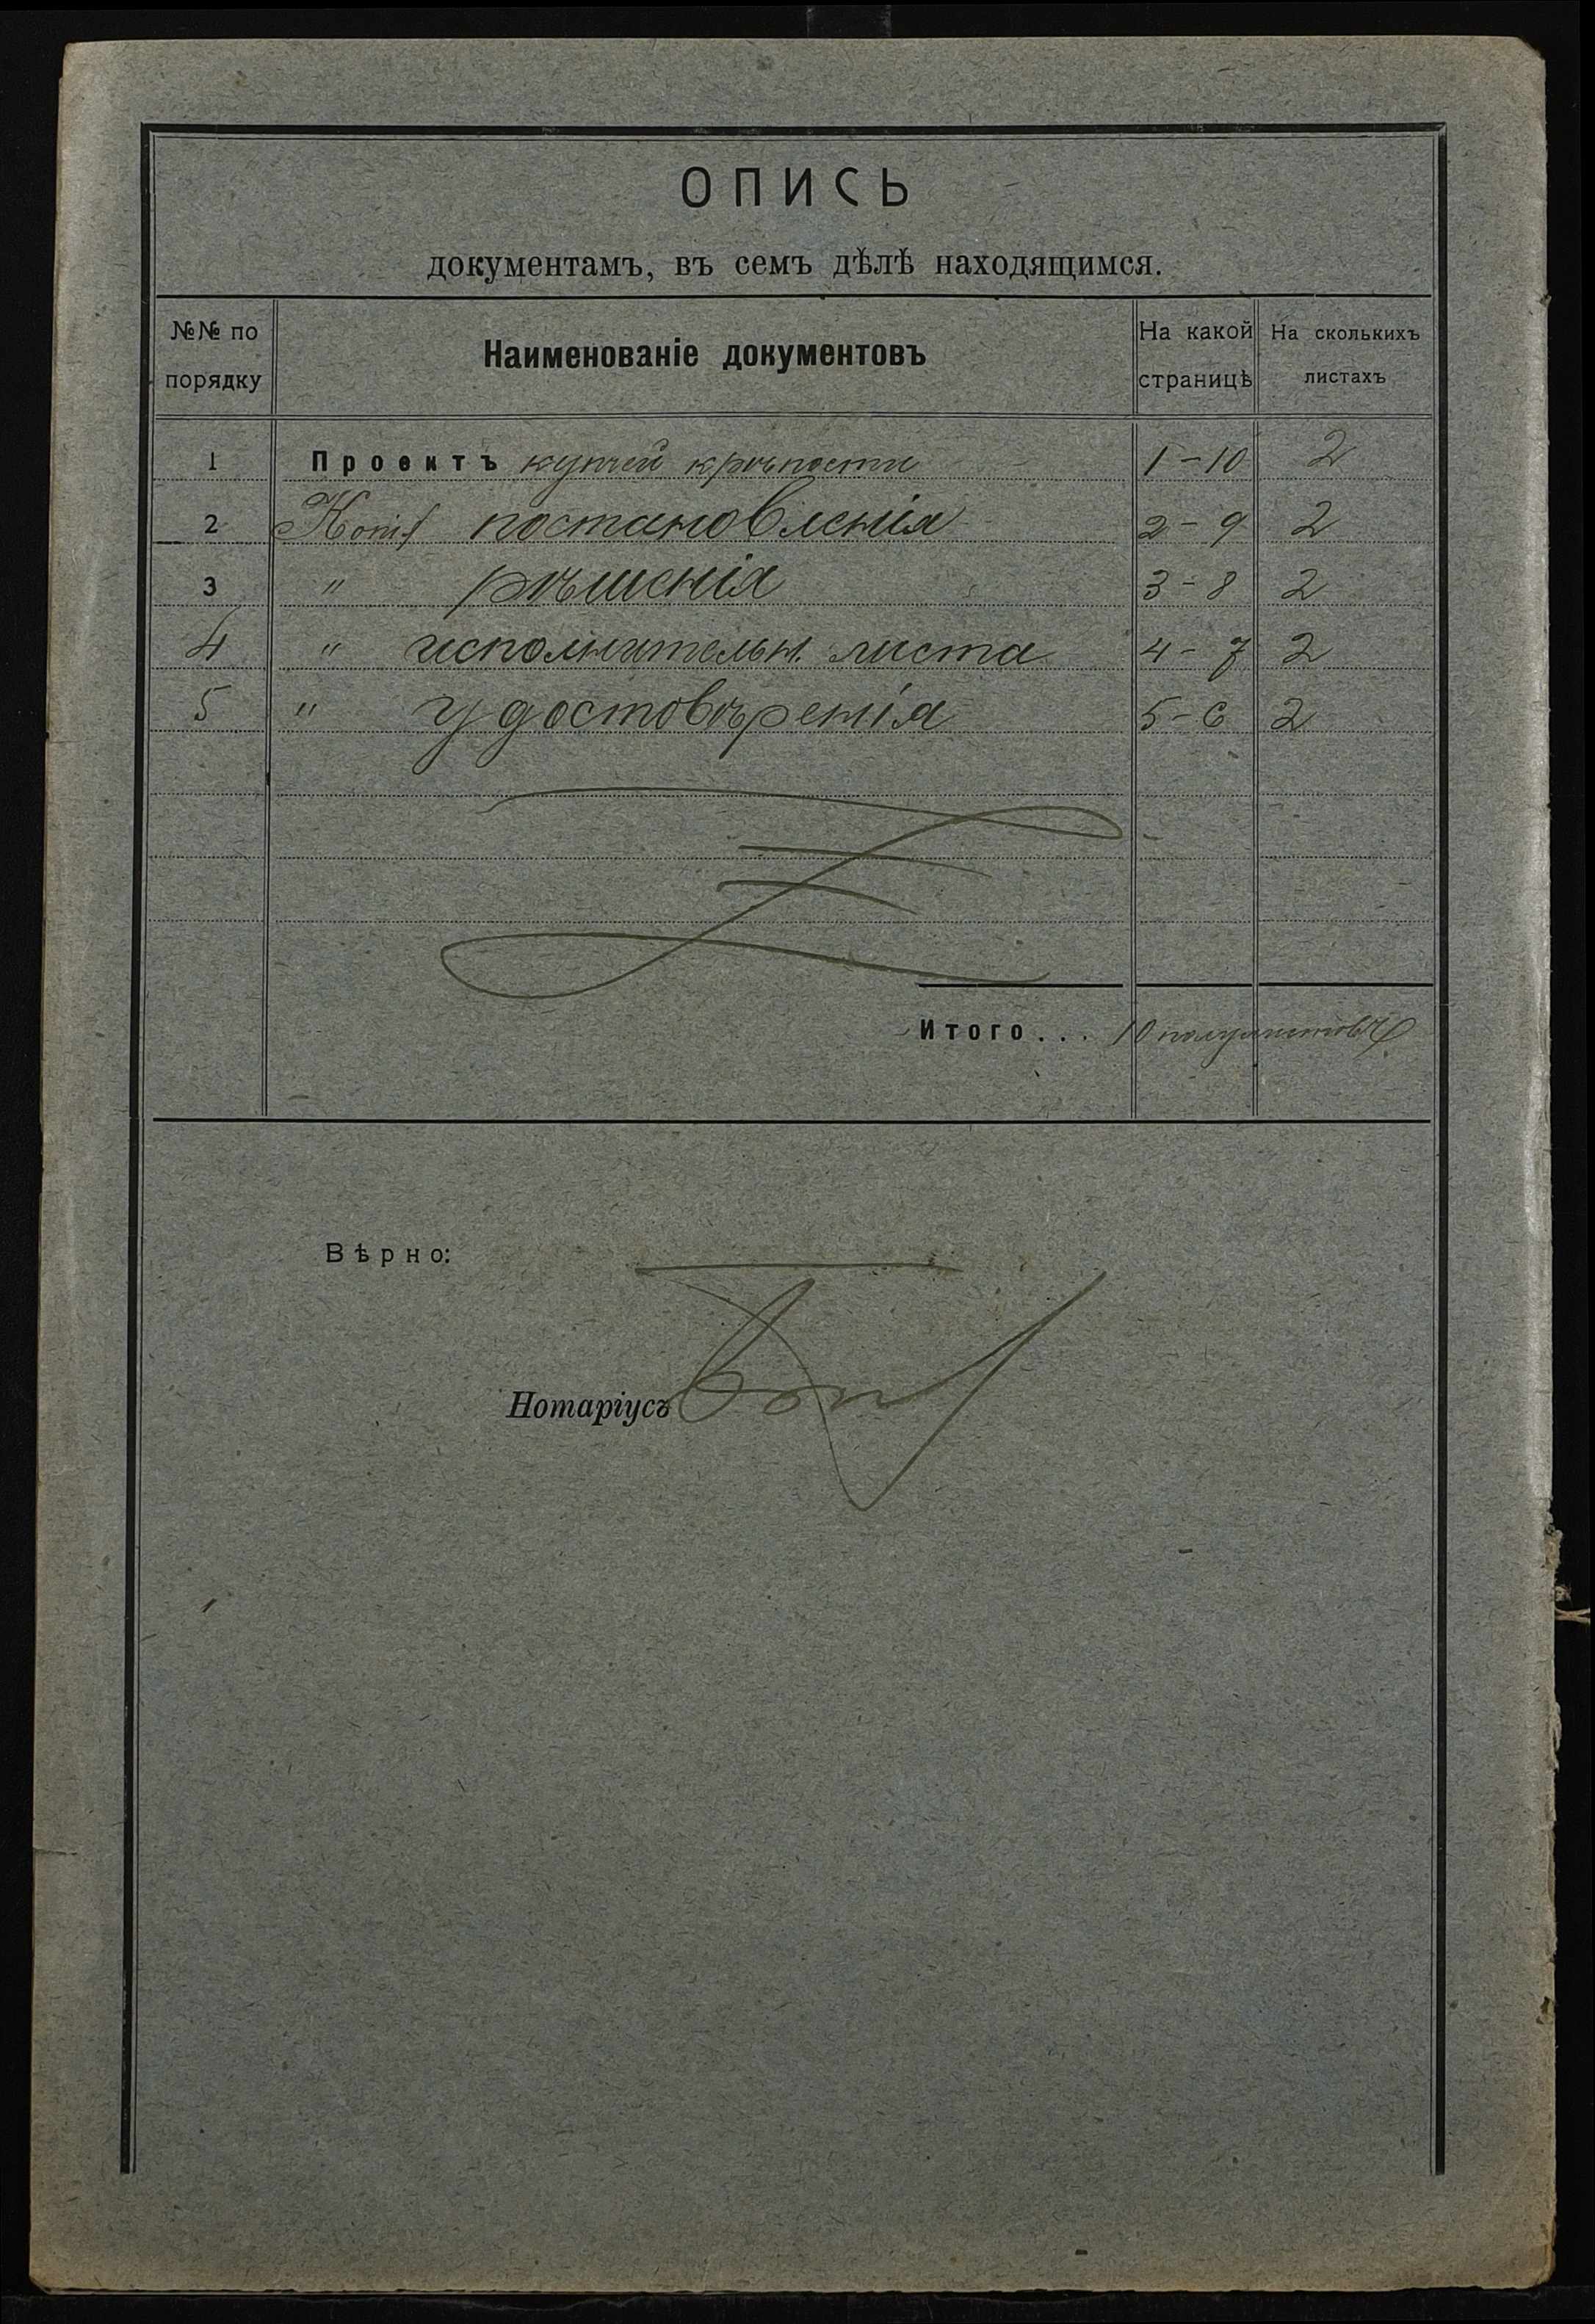 ОПИСЬ
документамъ, въ семъ дѣлѣ находящимся.
№№ по порядку
Наименованіе документовъ
На какой страницѣ
На сколькихъ листахъ
1 Проектъ купчей крѣпости 1-10 2
2 Копія постановленія 2-9 2
3 " рѣшенія 3-8 2
4 " исполнительн. листа 4-7 2
5 " удостовѣренія 5-6 2
Итого... 10 полулистовъ
Вѣрно:
Нотаріусъ